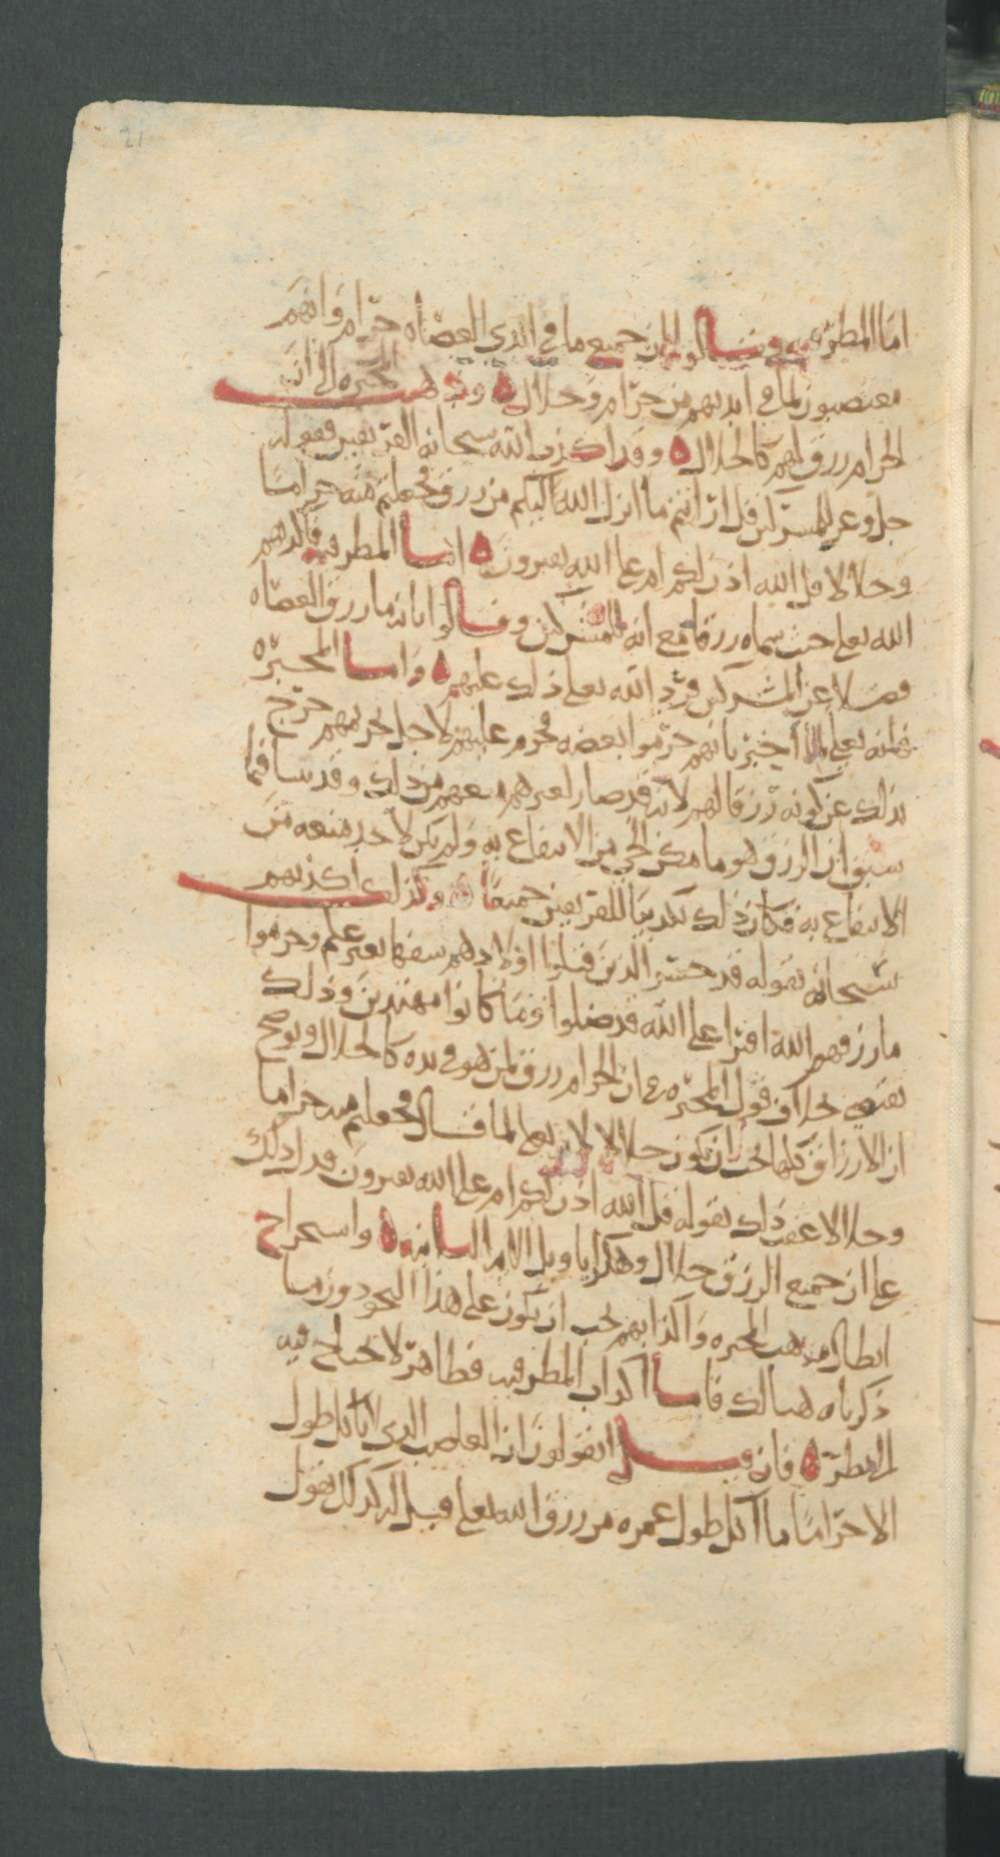 21
اما المطرفيه فقالوا ان جميع ما في ايدي العصاه حرام وانهم
معتصبون لما في ايديهم من حرام وحلال ه وذهبت المجبره الى ان
الحرام رزق لهم كالحلال ه وقد اكذب الله سبحانه الفريقين بقوله
جل وعز للمشركين قل ارايتم ما انزل الله لكم من رزق فجعلتم منه حراما
وحلالا قل الله اذن لكم ام على الله تفترون ه اما المطرفيه فاكذبهم
الله تعلى حيث سماه رزقا مع انه للمشركين وقالوا بانه ما رزق العصاه
فضلا عن المشركين فرد الله تعلى ذلك عليهم ه واما المجبره
فانه تعلى لما اخبر بانهم حرموا بعضه فحرم عليهم لاجل تحريمهم خرج
بذلك عن كونه رزقا لهم لانه قد صار لغيرهم منعهم من ذلك وقد بينا فيما
سبق ان الرزق هو ما مكن الحي من الانتفاع به ولم يكن لاحد منعه من
الانتفاع به فكان ذلك تكذيبا للفريقين جميعا ه وكذلك اكذبهم
سبحانه بقوله قد خسر الذين قتلوا اولادهم سفها بغير علم وحرموا
ما رزقهم الله افترا على الله قد ضلوا وما كانوا مهتدين وذلك
يقتضي خلاف قول المجبره في ان الحرام رزق لمن هو في يده كالحلال ويوضح
ان الارزاق كلها يجب ان تكون حلالا لانه تعلى لما قال فجعلتم منه حراما
وحلالا عقب ذلك بقوله قل الله اذن لكم ام على الله تفترون فدل ذلك
على ان جميع الرزق حلال وهكذا تاويل الايه الثانيه ه واستخراج
ابطال مذهب المجبره واكذابهم يجب ان يكون على هذا النحو دون ما
ذكرناه هنالك فاما اكذاب المطرفيه فظاهر لا يحتاج فيه
الى نظر ه فان قيل اتقولون ان الغاصب الذي لا ياكل طول
الا حراما ما اكل طول عمره من رزق الله تعلى قيل له كذلك نقول